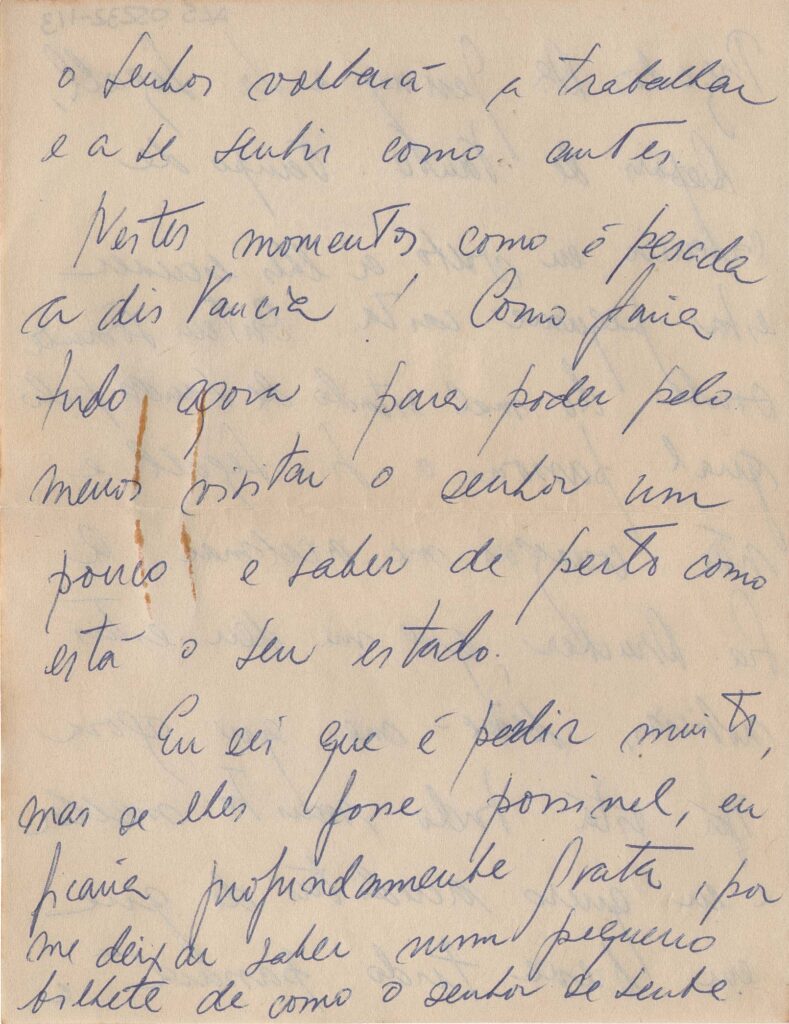 o senhor voltará a trabalhar
e a se sentir como antes.
Nestes momentos como é pesada
a distancia! Como faria
tudo agora para poder pelo
menos visitar o senhor um
pouco e saber de perto como
está o seu estado.
Eu sei que é pedir muito,
mas se lhes fosse possivel, eu
ficaria profundamente grata, por
me deixar saber num pequeno
bilhete de como o senhor se sente.